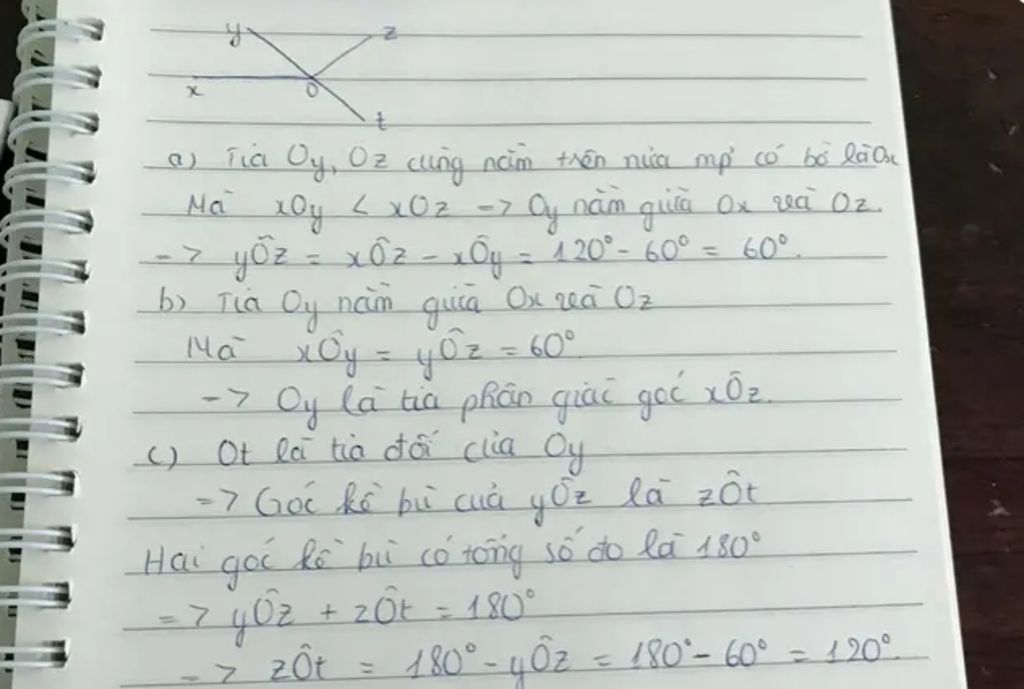 y z
x O
t
a) Tia Oy, Oz cùng nằm trên nửa mp có bờ là Ox
Mà xOy < xOz -> Oy nằm giữa Ox và Oz.
-> yÔz = xÔz - xÔy = 120° - 60° = 60°.
b) Tia Oy nằm giữa Ox và Oz
Mà xÔy = yÔz = 60°
-> Oy là tia phân giác góc xÔz.
c) Ot là tia đối của Oy
=> Góc kề bù của yÔz là zÔt
Hai góc kề bù có tổng số đo là 180°
=> yÔz + zÔt = 180°
-> zÔt = 180° - yÔz = 180° - 60° = 120°.